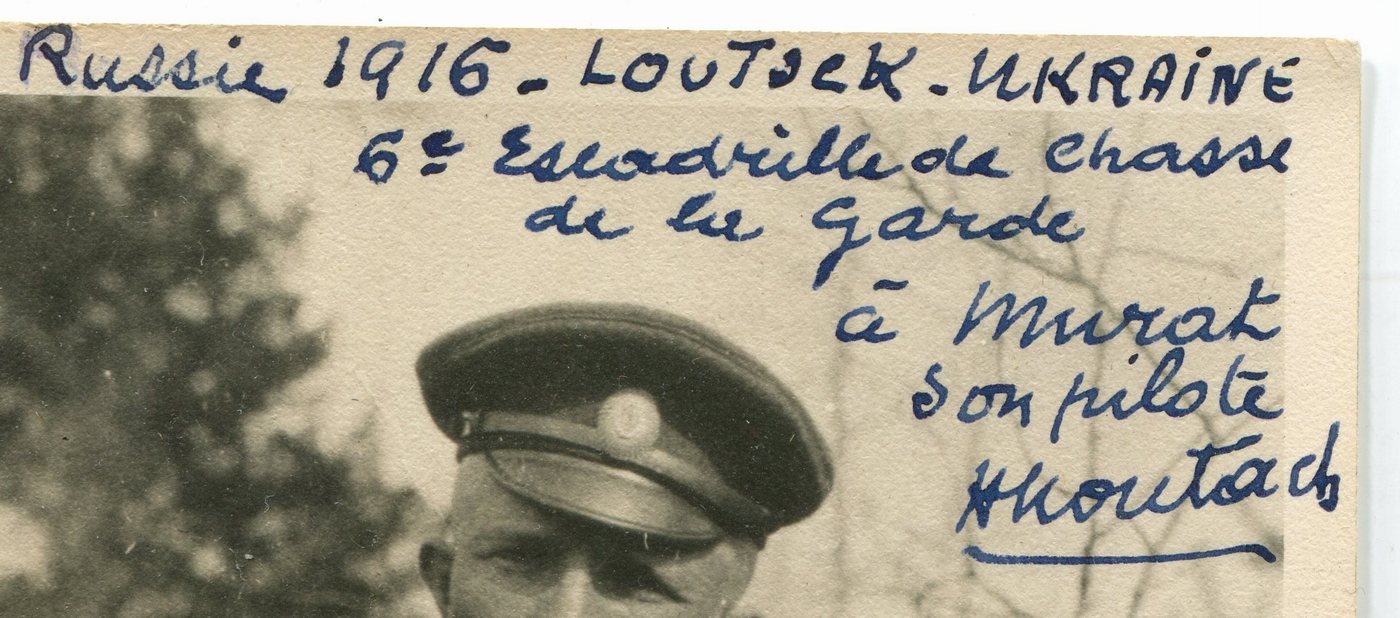 Russie 1916 - LOUTSCK - UKRAINE
6e Escadrille de Chasse
de la Garde
à Murat
son pilote
Akoutach